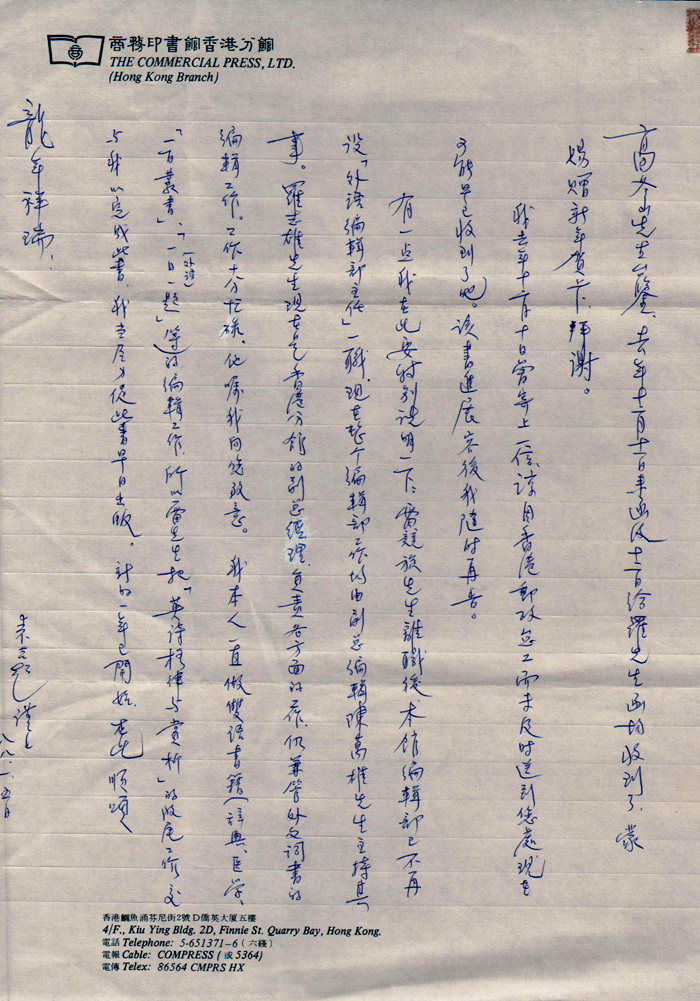 商務印書館香港分館
THE COMMERCIAL PRESS, LTD.
(Hong Kong Branch)
先生台鑒、去年十二月十一日来函及十二日给羅先生函均收到了、蒙
赐赠新年贺卡、拜谢。
我去年十二月十日曾寄上一信、谅因香港郵政怠工而未及时送到您處、现在
可能早已收到了吧。该書進展容後我随时再告。
有一点我在此要特别说明一下：雷競旋先生離職後、本館編輯部已不再
设「外语编輯部主任」一職、现在整个编輯部工作均由副总编輯陳萬雄先生主持其
事。羅志雄先生现在是香港分館的副总經理、負责各方面的工作、仍兼管外文詞書的
编輯工作。工作十分忙碌。他嘱我向您致意。我本人一直做雙语書籍(辞典、医学、
「一百叢書」、「(外語)一日一題」等)的编輯工作、所以雷先生把「英诗格律与赏析」的收尾工作交
与我以完成此書、我当尽力促此書早日出版。新的一年已開始、在此順頌
龍年祥瑞！
谨上
八八.一.五日
香港鰂魚涌芬尼街2號D僑英大厦五樓
4/F., Kiu Ying Bldg. 2D, Finnie St. Quarry Bay, Hong Kong.
電話 Telephone: 5-651371-6 (六綫)
電報 Cable: COMPRESS (或5364)
電傳 Telex: 86564 CMPRS HX